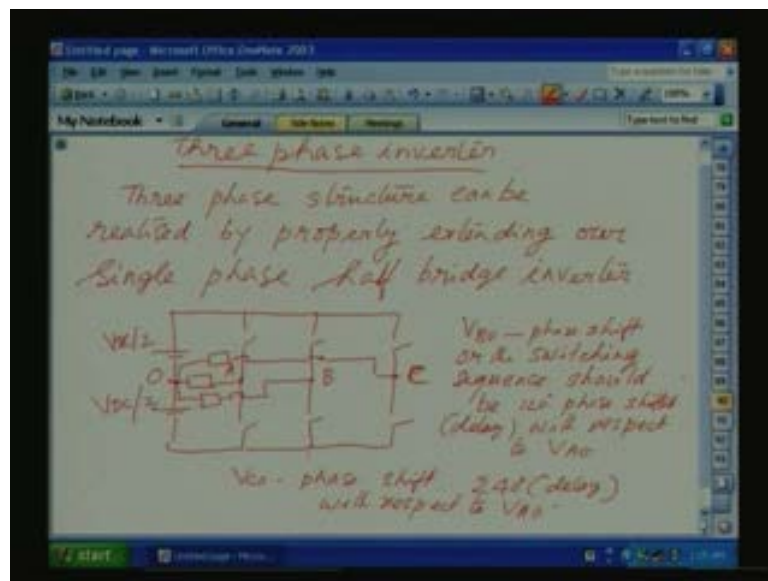 Untitled page - Microsoft Office OneNote 2003
File Edit View Insert Format Tools Window Help
My Notebook
General Side Notes Meetings
Three phase inverter
Three phase structure can be
realised by properly extending over
Single phase half bridge inverter
VDC/2
O
VDC/2
A
B
C
VBO - phase shift
or the switching
sequence should
be 120 phase shifted
(delay) with respect
to VAO
VCO - phase shift 240 (delay)
with respect to VAO
start
Untitled page - Micro...